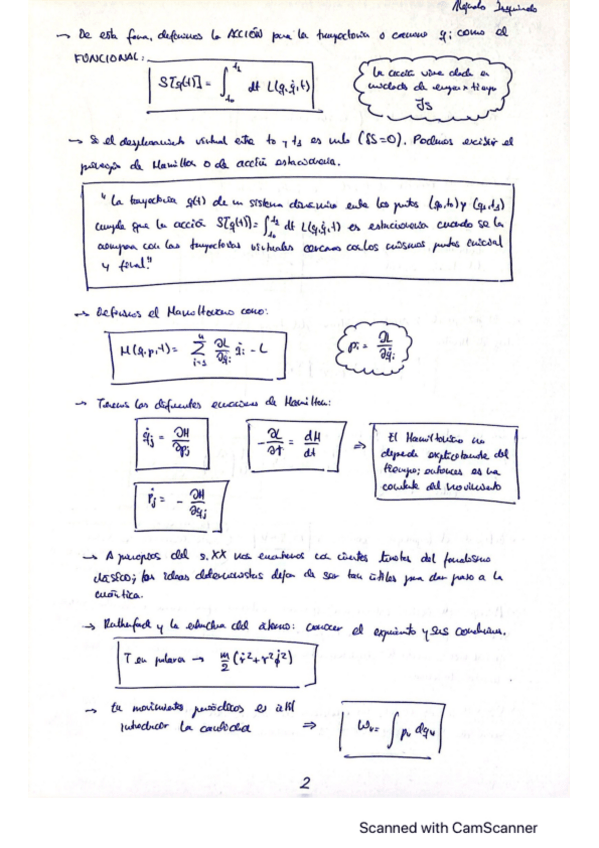 Alejandro Izquierdo
→ De esta forma, definimos la ACCIÓN para la trayectoria o camino qi como el
FUNCIONAL:
S[q(t)] = ∫_{t0}^{t1} dt L(q, q̇, t)
La acción viene dada en
unidades de energía × tiempo
JS
→ Si el desplazamiento virtual entre t0 y t1 es nulo (δS=0). Podemos escribir el
principio de Hamilton o de acción estacionaria.
"La trayectoria q(t) de un sistema dinámico entre los puntos (q0,t0) y (q1,t1)
cumple que la acción S[q(t)] = ∫_{t0}^{t1} dt L(q, q̇, t) es estacionaria cuando se la
compara con las trayectorias virtuales cercanas con los mismos puntos inicial
y final."
→ Definimos el Hamiltoniano como:
H(q,p,t) = Σ_{i=1}^{n} ∂L/∂q̇i q̇i - L
pi = ∂L/∂q̇i
→ Tenemos las diferentes ecuaciones de Hamilton:
q̇j = ∂H/∂pj
-∂L/∂t = dH/dt ⇒
El Hamiltoniano no
depende explícitamente del
tiempo; entonces es una
constante del movimiento
ṗj = - ∂H/∂qj
→ A principios del s. XX nos encontramos con ciertos límites del formalismo
clásico; las ideas deterministas dejan de ser tan útiles para dar paso a la
cuántica.
→ Rutherford y la estructura del átomo: conocer el experimento y sus conclusiones.
T en polares → m/2 (ṙ² + r²φ̇²)
→ En movimientos periódicos es útil
introducir la cantidad ⇒ Wk = ∫ pk dqk
2
Scanned with CamScanner